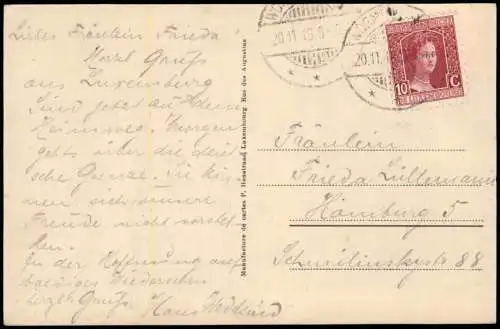 Liebes Fräulein Frieda!
Herzl. Gruß
aus Luxemburg
Sind jetzt auf dem
Heimweg. Morgen
gehts über die deut-
sche Grenze. Sie kön-
nen sich unsere
Freude nicht vorstel-
len.
In der Hoffnung auf
baldiges Wiedersehen
herzl. Gruß Hans
Manufacture de cartes P. Houstraas, Luxembourg Rue des Augustins
20.11.18
20.11.1
10 C
Fräulein
Frieda Lüllemann
Hamburg 5
88